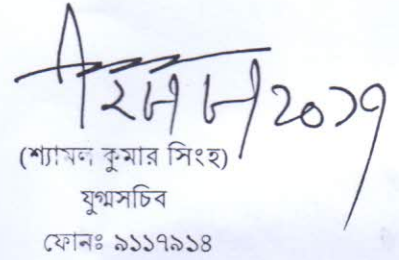 ২০১৭
(শ্যামল কুমার সিংহ)
যুগ্মসচিব
ফোনঃ ৯১১৭৯১৪